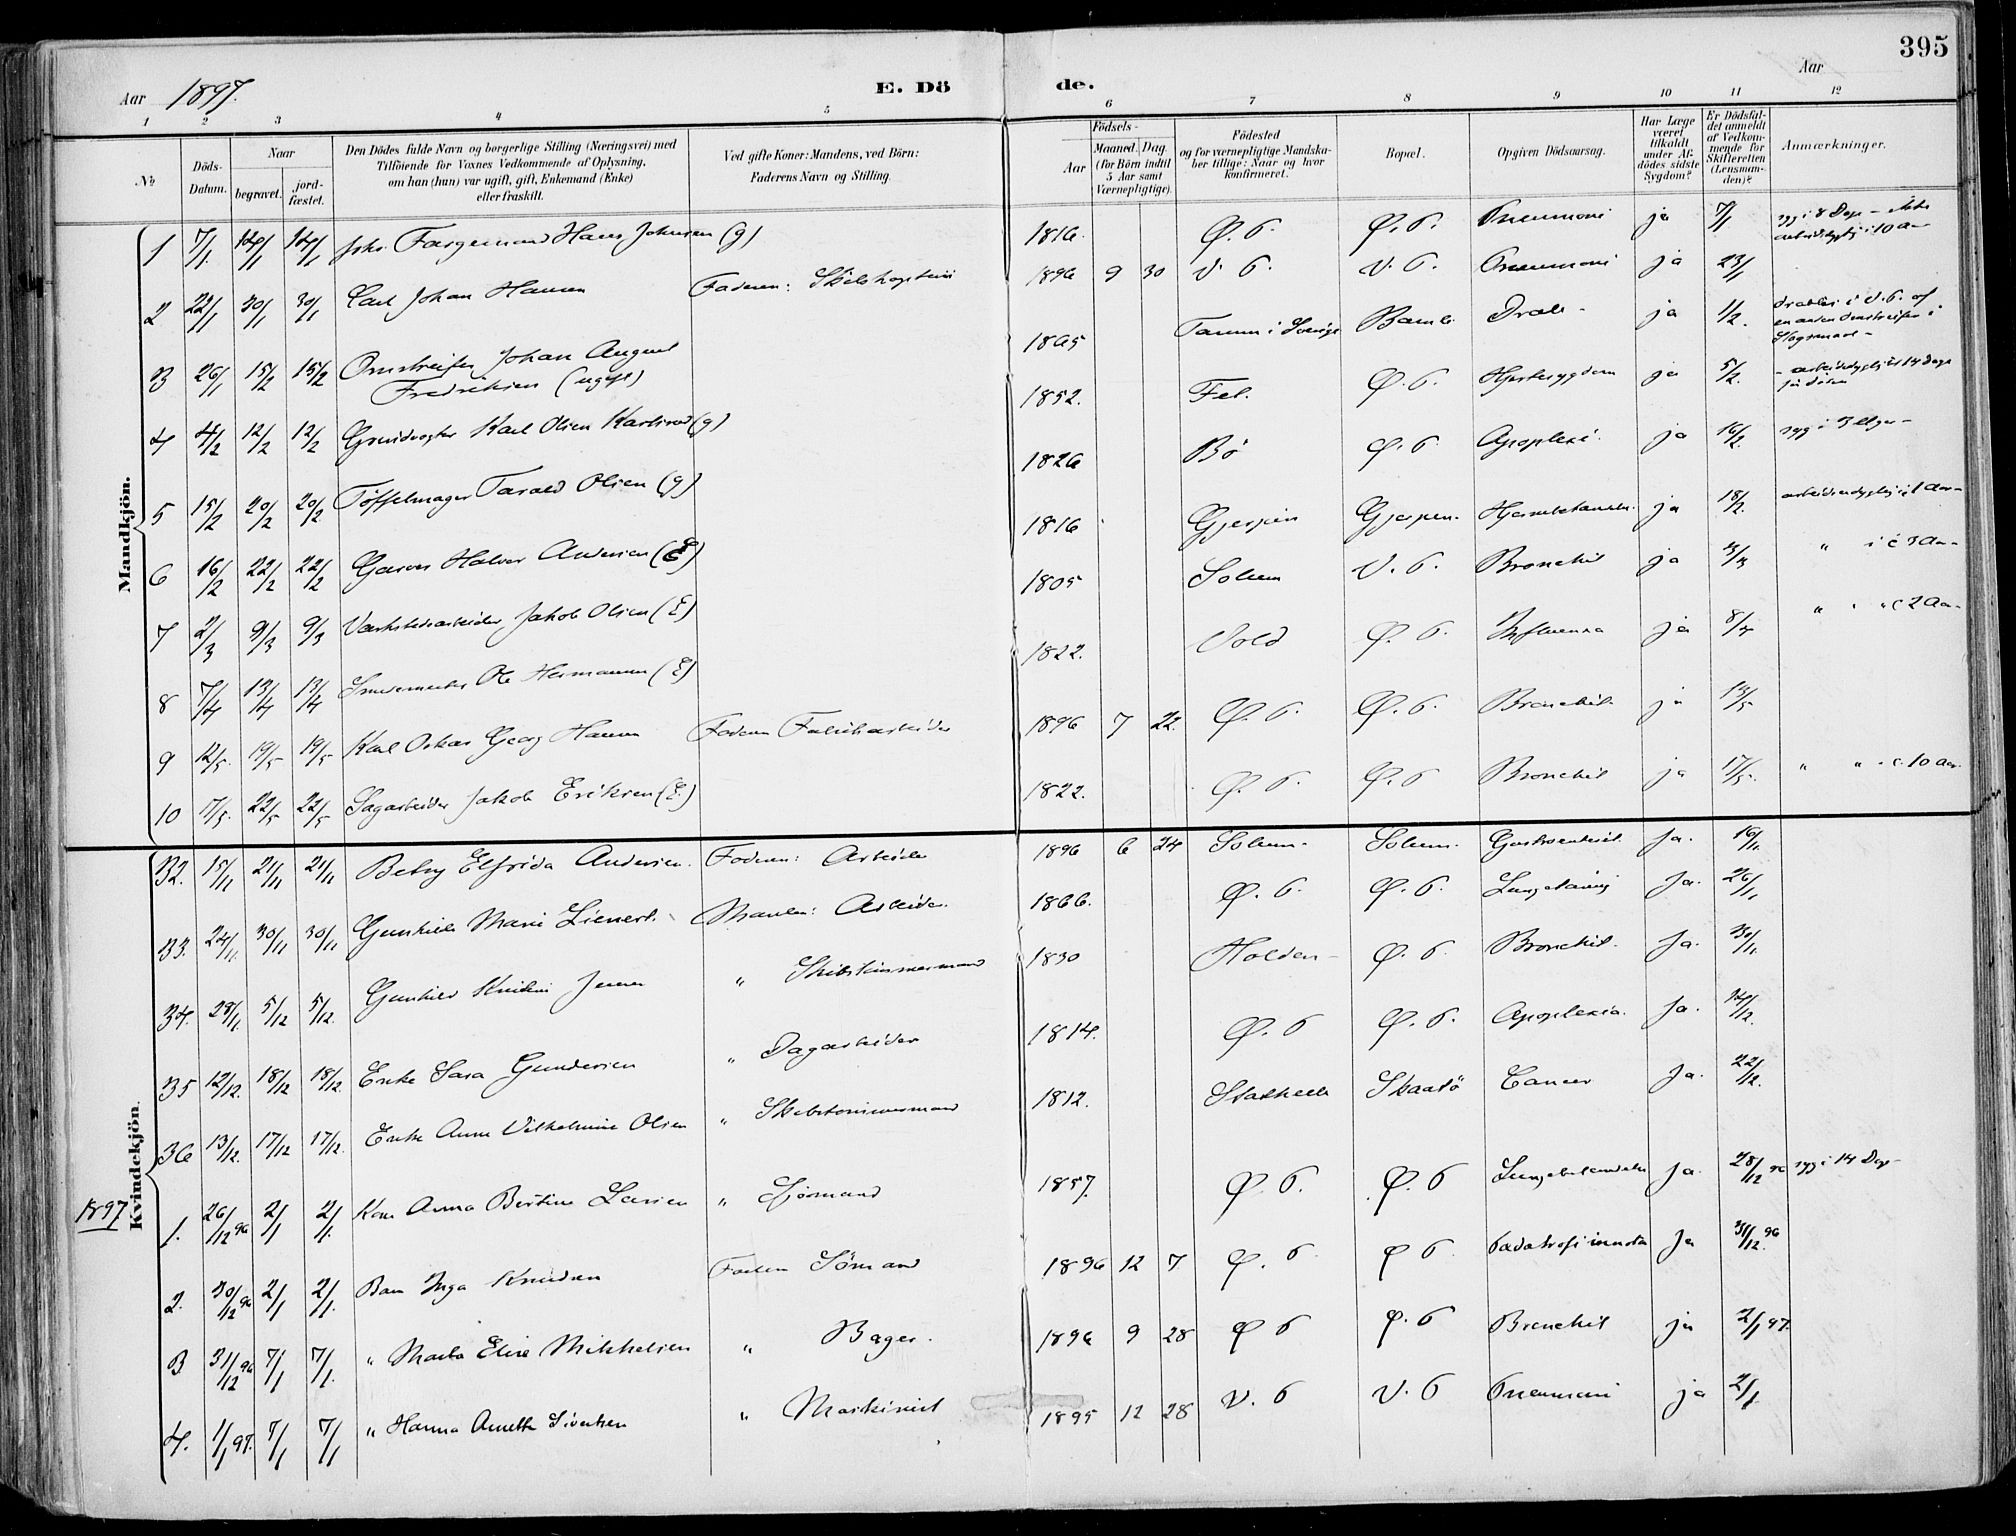 395
Aar 1897.
E. Dö de.
Aar
1 2 3 4 5 6 7 8 9 10 11 12
№
Döds-Datum.
Naar
begravet.
jord-fæstet.
Den Dödes fulde Navn og borgerlige Stilling (Næringsvei) med
Tilföiende for Voxnes Vedkommende af Oplysning,
om han (hun) var ugift, gift, Enkemand (Enke)
eller fraskilt.
Ved gifte Koner: Mandens, ved Börn:
Faderens Navn og Stilling.
Födsels-
Aar
Maaned. Dag.
(for Börn indtil
5 Aar samt
Værnepligtige).
Födested
og for værnepligtige Mandska-
ber tillige: Naar og hvor
konfirmeret.
Bopæl.
Opgiven Dödsaarsag.
Har Læge
været
tilkaldt
under Af-
dödes sidste
Sygdom?
Er Dödsfal-
det anmeldt
af Vedkom-
mende for
Skifteretten
(Lensman-
den)?
Anmærkninger.
Mandkjön.
1 7/1. 14/1 14/1 Hans Johnsen (g) 1816. Ø. P. Ø. P. Pneumoni ja 7/1 syg i 8 Dage - ikke
i 10 Aar
2 22/1 30/1 30/1 Carl Johan Hansen Faderen: 1896 9 30 V. P. V. P. Pneumoni ja 23/1
3 26/1 15/2 15/2 Omstreifer Johan August
Fredriksen (ugift) 1865 Tanum i Sverige Bamle Dræb- ja 1/2.
4 4/2 12/2 12/2 Karl Olsen (g) 1852. Ø. P. Hjertesygdom ja 5/2. 14 Dage
5 15/2 20/2 20/2 Tøffelmager Tarald Olsen (g) 1826 Bø Ø. P. Apoplexi. ja 16/2. syg i 3
6 16/2 22/2 22/2 Garver Halvor Andersen (E) 1816 Gjerpen Gjerpen. ja 18/2. 1 Aar-
7 2/3 9/3 9/3 Værkstedsarbeider Jakob Olsen (E) 1805 Solum V. P. Bronchit ja " i c 3 Aar-
8 7/4 13/4 13/4 Ole Hermansen (E) 1822. Vold Ø. P. Influenza ja 8/4 " " c 2 Aar-
9 12/5. 19/5 19/5 Karl Oskar Georg Hansen Faderen Fabrikarbeider 1896 7 22. Ø. P. Ø. P. Bronchit ja 13/5
10 17/5. 22/5 22/5 Sagarbeider Jakob Eriksen (E) 1822. Ø. P. Ø. P Bronchit ja 17/5. " " c. 10 Aar.
Kvindekjön.
32. 15/11 21/11 21/11 Betsy Elfrida Andersen. Faderen: Arbeider 1896 6 24 Solum. Solum. Gastroenterit. Ja. 16/11.
33. 24/11. 30/11 30/11 Gunhild Marie Lienert. Manden: Arbeider. 1866. Ø. P. Ø. P. Lungetæring Ja. 26/11
34. 28/11. 5/12 5/12. Gunhild Jensen " Skibstømmermand 1830 Holden Ø. P. Bronchit. Ja. 30/11.
35 12/12. 18/12 18/12. Enke Sara Gundersen " Dagarbeider 1814. Ø. P Ø. P. Apoplexia. Ja. 14/12.
36 13/12. 17/12 17/12. Enke Anne Vilhelmine Olsen " Skibstømmermand 1812. Stathelle Skaatø Cancer Ja. 22/12.
1897
1. 26/12 96 2/1 2/1. Kone Anna Bertine Larsen " Sjømand 1857. Ø P. Ø. P Lungebetændelse Ja. 28/12 96 syg i 14 Dage-
2. 30/12 96 2/1 2/1. Barn Inga Knudsen Faderen Sømand 1896 12 7. Ø. P. Ø P. Ja 31/12. 96
3 31/12 96 7/1 7/1. " Marta Elise Mikkelsen " Bager. 1896 9 28 Ø P Ø. P Bronchit ja 2/1 97.
4. 1/1 97. 7/1 7/1 " Hanna Anette Sivertsen " Maskinist 1895 12 28 V. P V. P Pneumoni ja 2/1